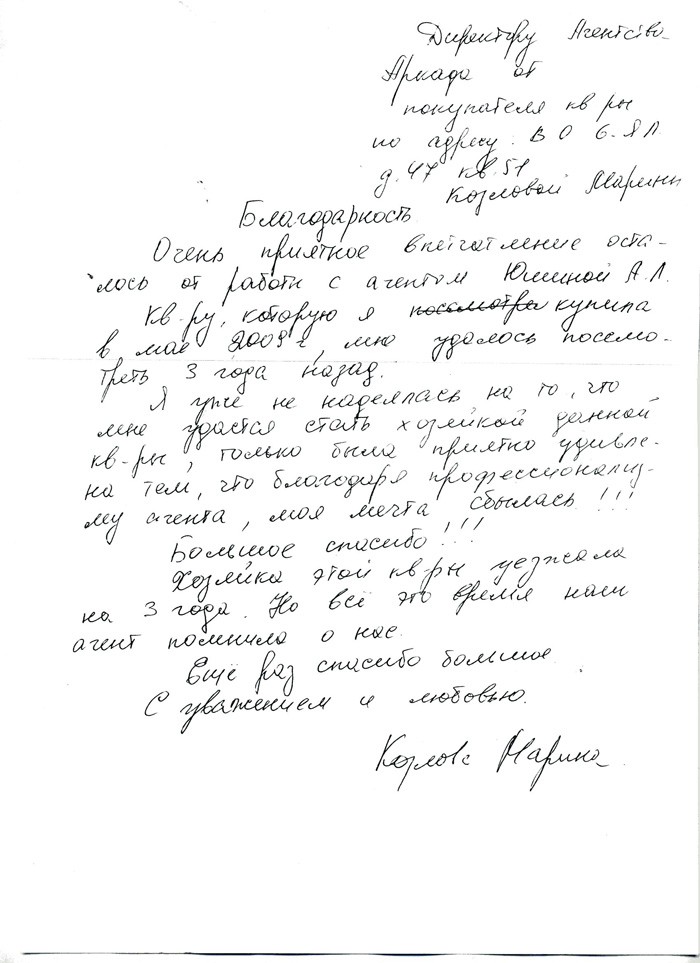 Директору Агентства
Аркада от
покупателя кв ры
по адресу. В О 6-я л.
д. 47 кв. 51
Козловой Марины
Благодарность
Очень приятное впечатление оста-
лось от работы с агентом Юшиной А.Л.
Кв-ру, которую я посмотрел купила
в мае 2009 г, мне удалось посмо-
треть 3 года назад.
Я уже не надеялась на то, что
мне удастся стать хозяйкой данной
кв-ры, только была приятно удивле-
на тем, что благодаря профессионализ-
му агента, моя мечта сбылась!!!
Большое спасибо!!!
Хозяйка этой кв ры уезжала
на 3 года. Но всё это время наш
агент помнила о нас.
Ещё раз спасибо большое
С уважением и любовью.
Козлова Марина